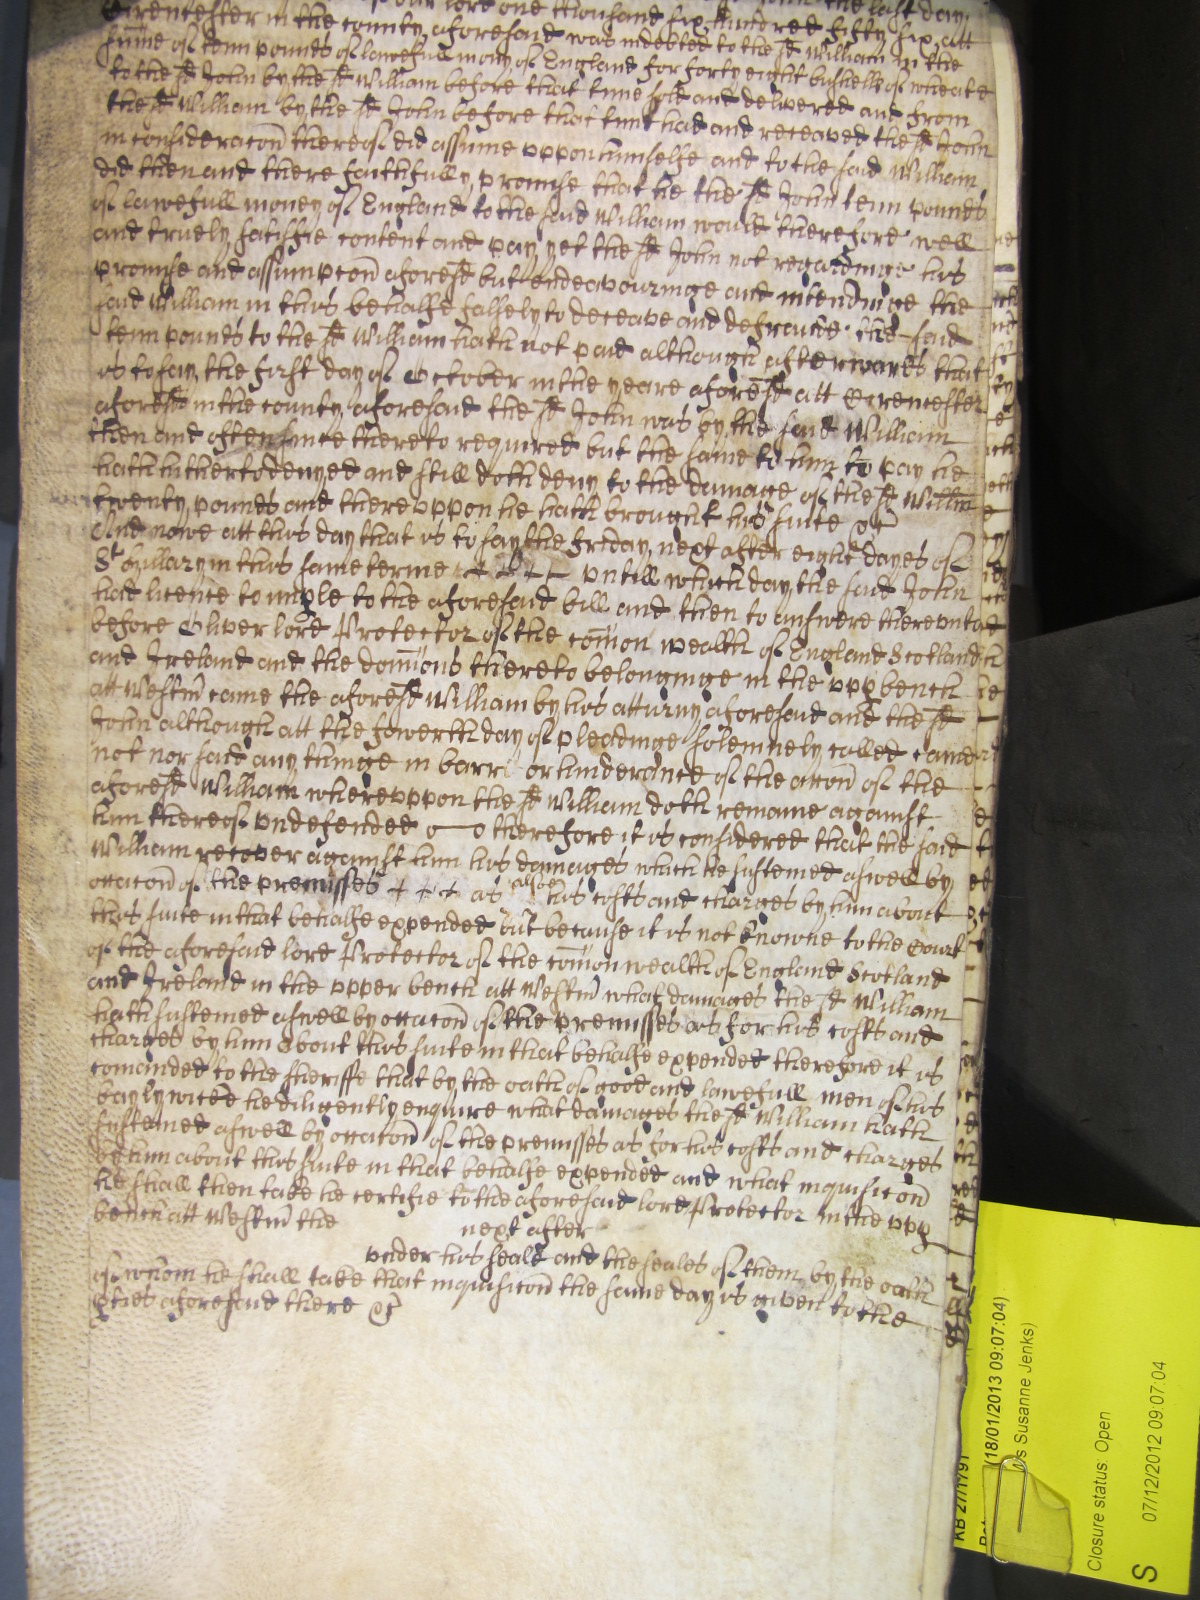 our lord one thousand six hundred fifty six att
Cirencester in the county aforesaid was indebted to the sd William in the
sume of tenn pounds of lawefull mony of England for forty eight bushells of wheate
to the sd John by the sd William before that time sold and delivered and from
the sd William by the sd John before that time had and receaved the sd John
in consideracon thereof did assume vppon himselfe and to the said William
did then and there faithfully promise that he the sd John tenn pounds
of lawefull money of England to the said William would therefore well
and truely satisfie content and pay yet the sd John not regardinge his
promise and assumpcon aforesd but endeavouringe and intendinge the
said William in this behalfe falsely to deceave and defraude the said
tenn pounds to the sd William hath not paid although afterwards that
is to say the first day of October in the yeare aforesd att Cirencester
aforesd in the county aforesaid the sd John was by the said William
then and often since thereto required but the same to him to pay he
hath hitherto denyed and still doth deny to the damage of the sd Willm
twenty pounds and there vppon he hath brought his suite &c
And nowe att this day that is to say the Friday next after eight dayes of
St Hillary in this same terme vntill which day the said John
had licence to imple to the aforesaid bill and then to answere therevnto
before Oliver lord Protector of the comon wealth of England Scotland
and Ireland and the domions thereto belonginge in the vpp bench
att Westm came the aforesd William by his atturny aforesaid and the sd
John although att the fowerth day of pleadinge solemnely called came
not nor said any thinge in barr or hinderance of the accon of the
aforesd William wherevppon the sd William doth remaine against
him thereof vndefended therefore it is considered that the said
William recover against him his damages which he susteined aswell by
occacon of the premisses + + + as alsoe his costs and charges by him about
this suite in that behalfe expended but because it is not knowne to the Court
of the aforesaid lord Protector of the comon wealth of England Scotland
and Ireland in the vpper bench att Westm what damages the sd William
hath susteined aswell by occacon of the premisses as for his costs and
charges by him about this suite in that behalfe expended therefore it is
comanded to the sheriffe that by the oath of good and lawefull men of his
baylywicke he diligently enquire what damages the sd William hath
susteined aswell by occacon of the premisses as for his costs and charges
by him about this suite in that behalfe expended and what inquisicon
he shall then take he certifie to the aforesaid lord Protector in the vpp
bench att Westm the next after
vnder his seale and the seales of them by the oath
of whom he shall take that inquisicon the same day is given to the
pties aforesaid there &c
KB 27/1791
(18/01/2013 09:07:04)
s Susanne Jenks)
Closure status: Open
07/12/2012 09:07:04
S